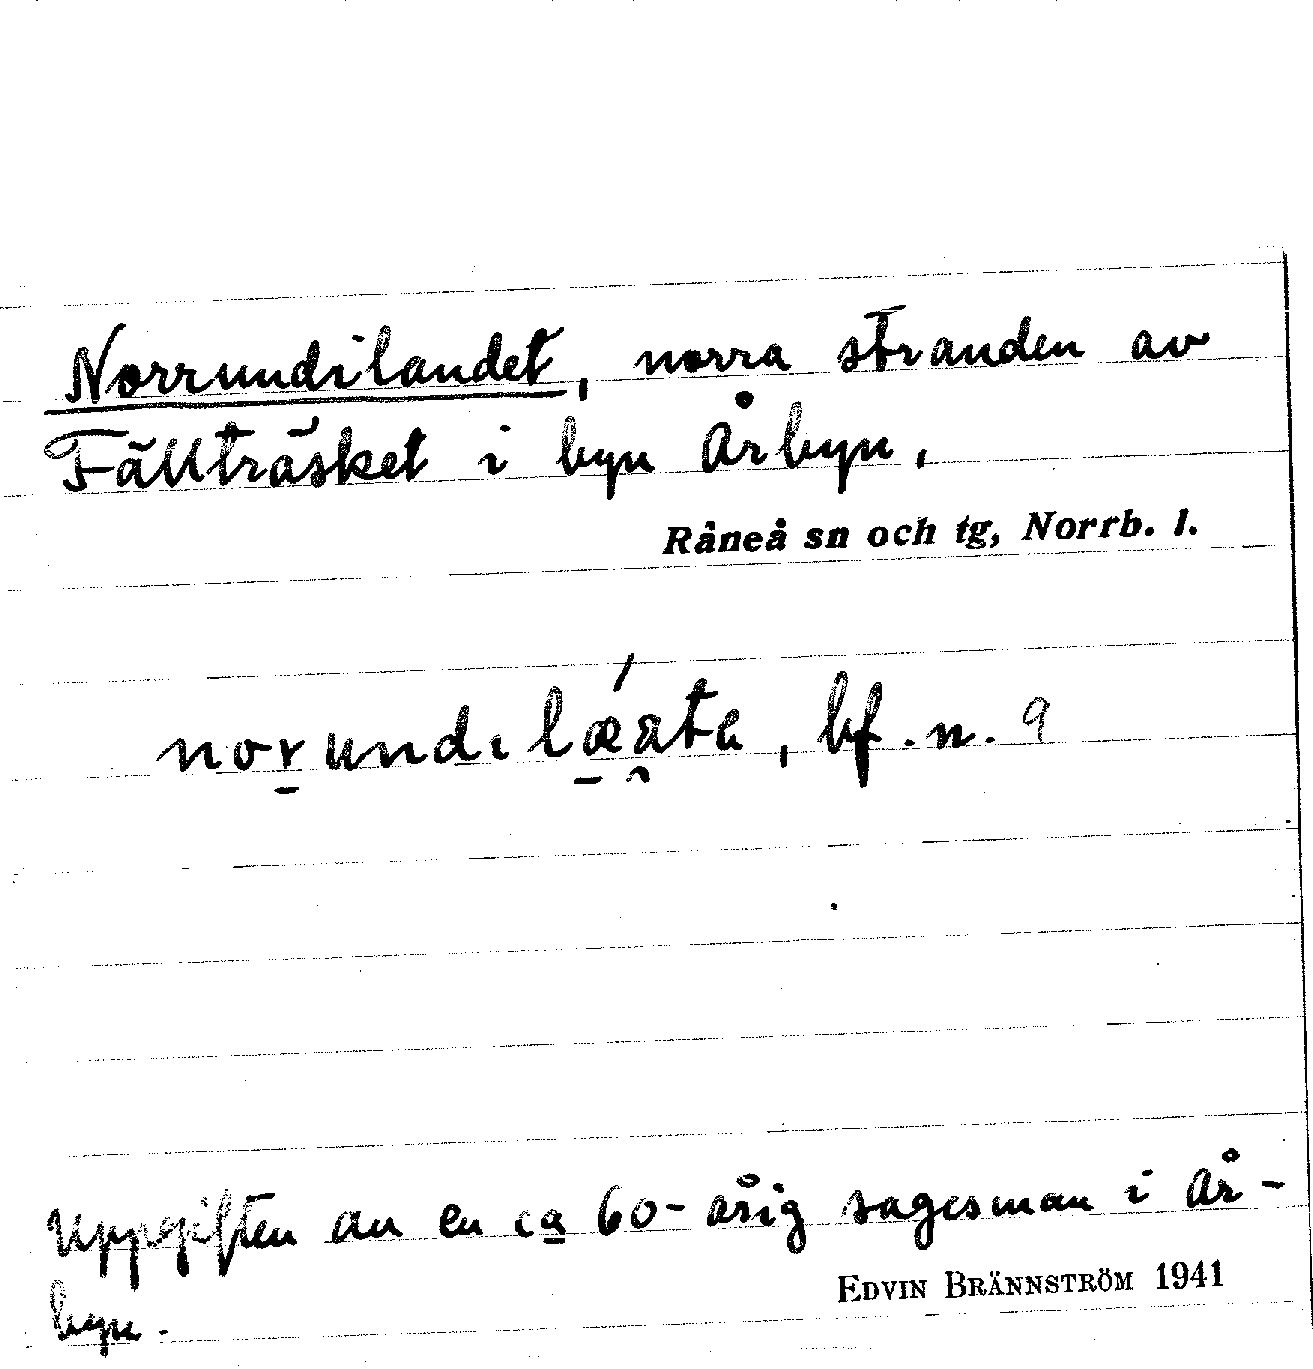 Norrundilandet, norra stranden av
Fällträsket i byn Årbyn,
Råneå sn och tg, Norrb. l.
norundilæate, bf. n. 9
Uppgiften av en ca 60-årig sagesman i År-
byn.
EDVIN BRÄNNSTRÖM 1941